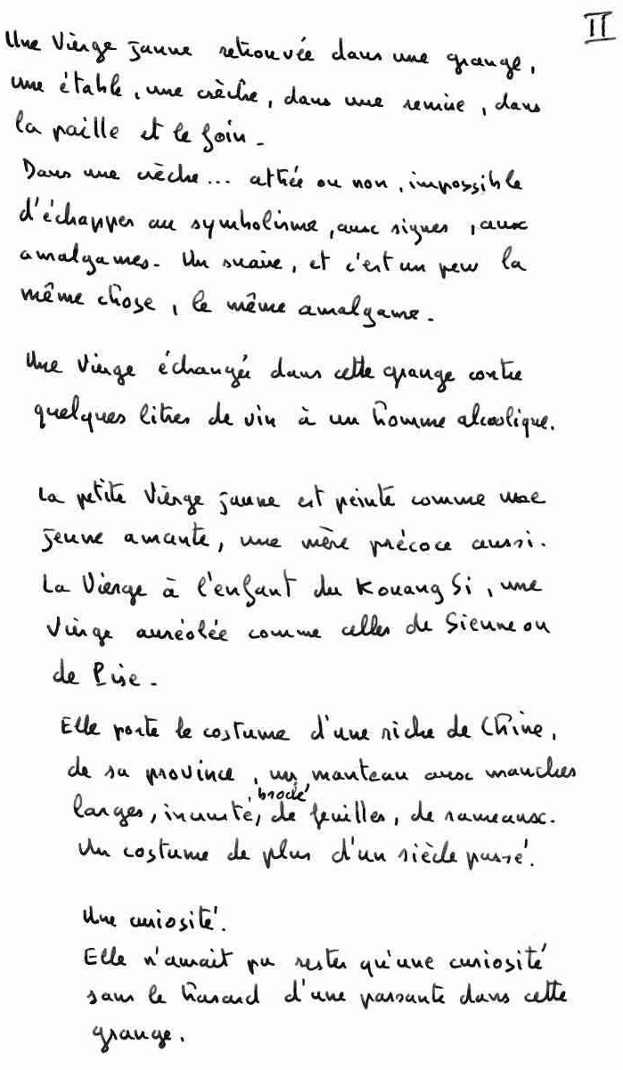 II
Une Vierge jaune retrouvée dans une grange,
une étable, une crèche, dans une remise, dans
la paille et le foin.
Dans une crèche... athée ou non, impossible
d'échapper au symbolisme, aux signes, aux
amalgames. Un suaire, et c'est un peu la
même chose, le même amalgame.
Une Vierge échangée dans cette grange contre
quelques litres de vin à un homme alcoolique.
La petite Vierge jaune est peinte comme une
jeune amante, une mère précoce aussi.
La Vierge à l'enfant du Kouang Si, une
Vierge auréolée comme celles de Sienne ou
de Pise.
Elle porte le costume d'une riche de Chine,
de sa province, un manteau aux manches
brodé
larges, incrusté, de feuilles, de rameaux.
Un costume de plus d'un siècle passé.
Une curiosité.
Elle n'aurait pu rester qu'une curiosité
sans le hasard d'une passante dans cette
grange.